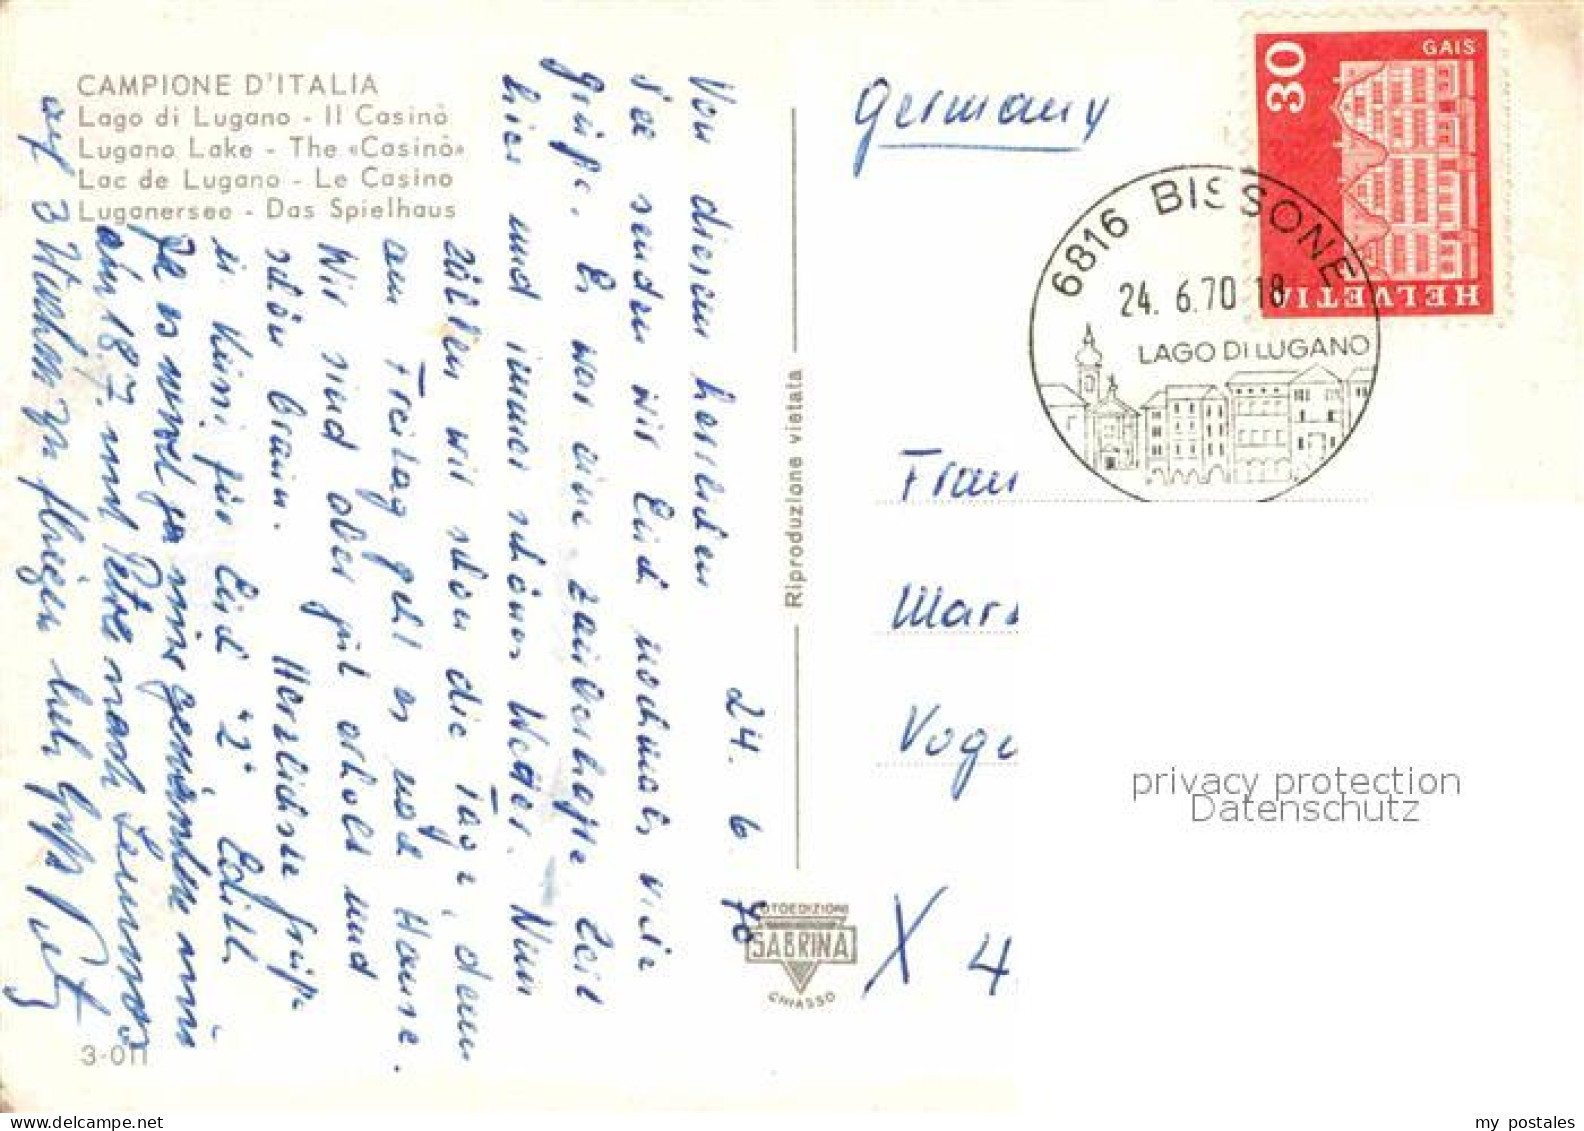 CAMPIONE D'ITALIA
Lago di Lugano - Il Casinò
Lugano Lake - The «Casinò»
Lac de Lugano - Le Casino
Luganersee - Das Spielhaus
24. 6. 70
Von diesem herrlichen
See senden wir Euch nochmals viele
Grüße. Es war eine zauberhafte Zeit
hier und immer schönes Wetter. Nun
zählen wir schon die Tage, denn
am Freitag geht es nach Hause.
Wir sind aber gut erholt und
schön braun. Herzlichste Grüße
für Euch "2" Edith
am 18.7. und Peter nach
auf 3 Wochen zu fliegen
3-011
Riproduzione vietata
FOTOEDIZIONI
SABRINA
CHIASSO
Germany
30
GAIS
HELVETIA
6816 BISSONE
24. 6.70 18
LAGO DI LUGANO
Frau
Mars
Vog
X 4
privacy protection
Datenschutz
my postales